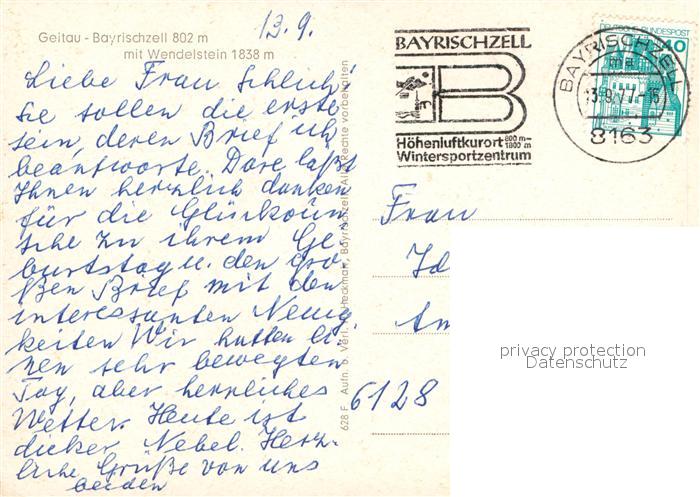 13.9.
Geitau - Bayrischzell 802 m
mit Wendelstein 1838 m
Liebe Frau Schlich!
Sie sollen die erste
sein, deren Brief ich
beantworte. Dore läßt
Ihnen herzlich danken
für die Glückwün
sche zu ihrem Ge-
burtstag u. den gro-
ßen Brief mit den
interessanten Neuig
keiten Wir hatten ei-
nen sehr bewegten
Tag, aber herrliches
Wetter. Heute ist
dicker Nebel. Herz-
liche Grüße von uns
beiden
628 F Aufn. u. Verl. Heckmair, Bayrischzell Alle Rechte vorbehalten
BAYRISCHZELL
B
Höhenluftkurort 800 m-
1800 m
Wintersportzentrum
BAYRISCHZELL
ma
13.9.77-16
8163
DEUTSCHE BUNDESPOST
40
Frau
Id
Am
6128
privacy protection
Datenschutz